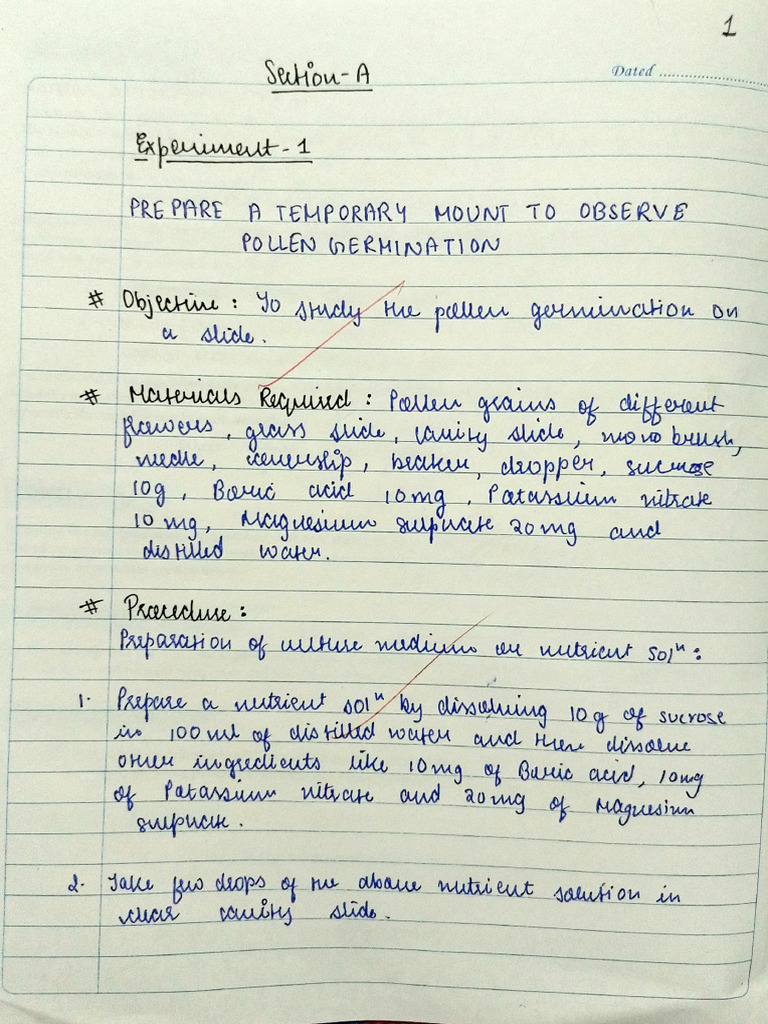 1
Section-A
Dated
Experiment-1
PREPARE A TEMPORARY MOUNT TO OBSERVE
POLLEN GERMINATION
# Objective : To study the pollen germination on
a slide.
# Materials Required : Pollen grains of different
flowers, glass slide, cavity slide, mono brush,
needle, coverslip, beaker, dropper, sucrose
10g, Boric acid 10mg, Potassium nitrate
10 mg, Magnesium sulphate 20mg and
distilled water.
# Procedure :
Preparation of culture medium or nutrient solⁿ :
1. Prepare a nutrient solⁿ by dissolving 10g of sucrose
in 100 ml of distilled water and then dissolve
other ingredients like 10mg of Boric acid, 10mg
of Potassium nitrate and 20mg of Magnesium
sulphate.
2. Take few drops of the above nutrient solution in
clear cavity slide.